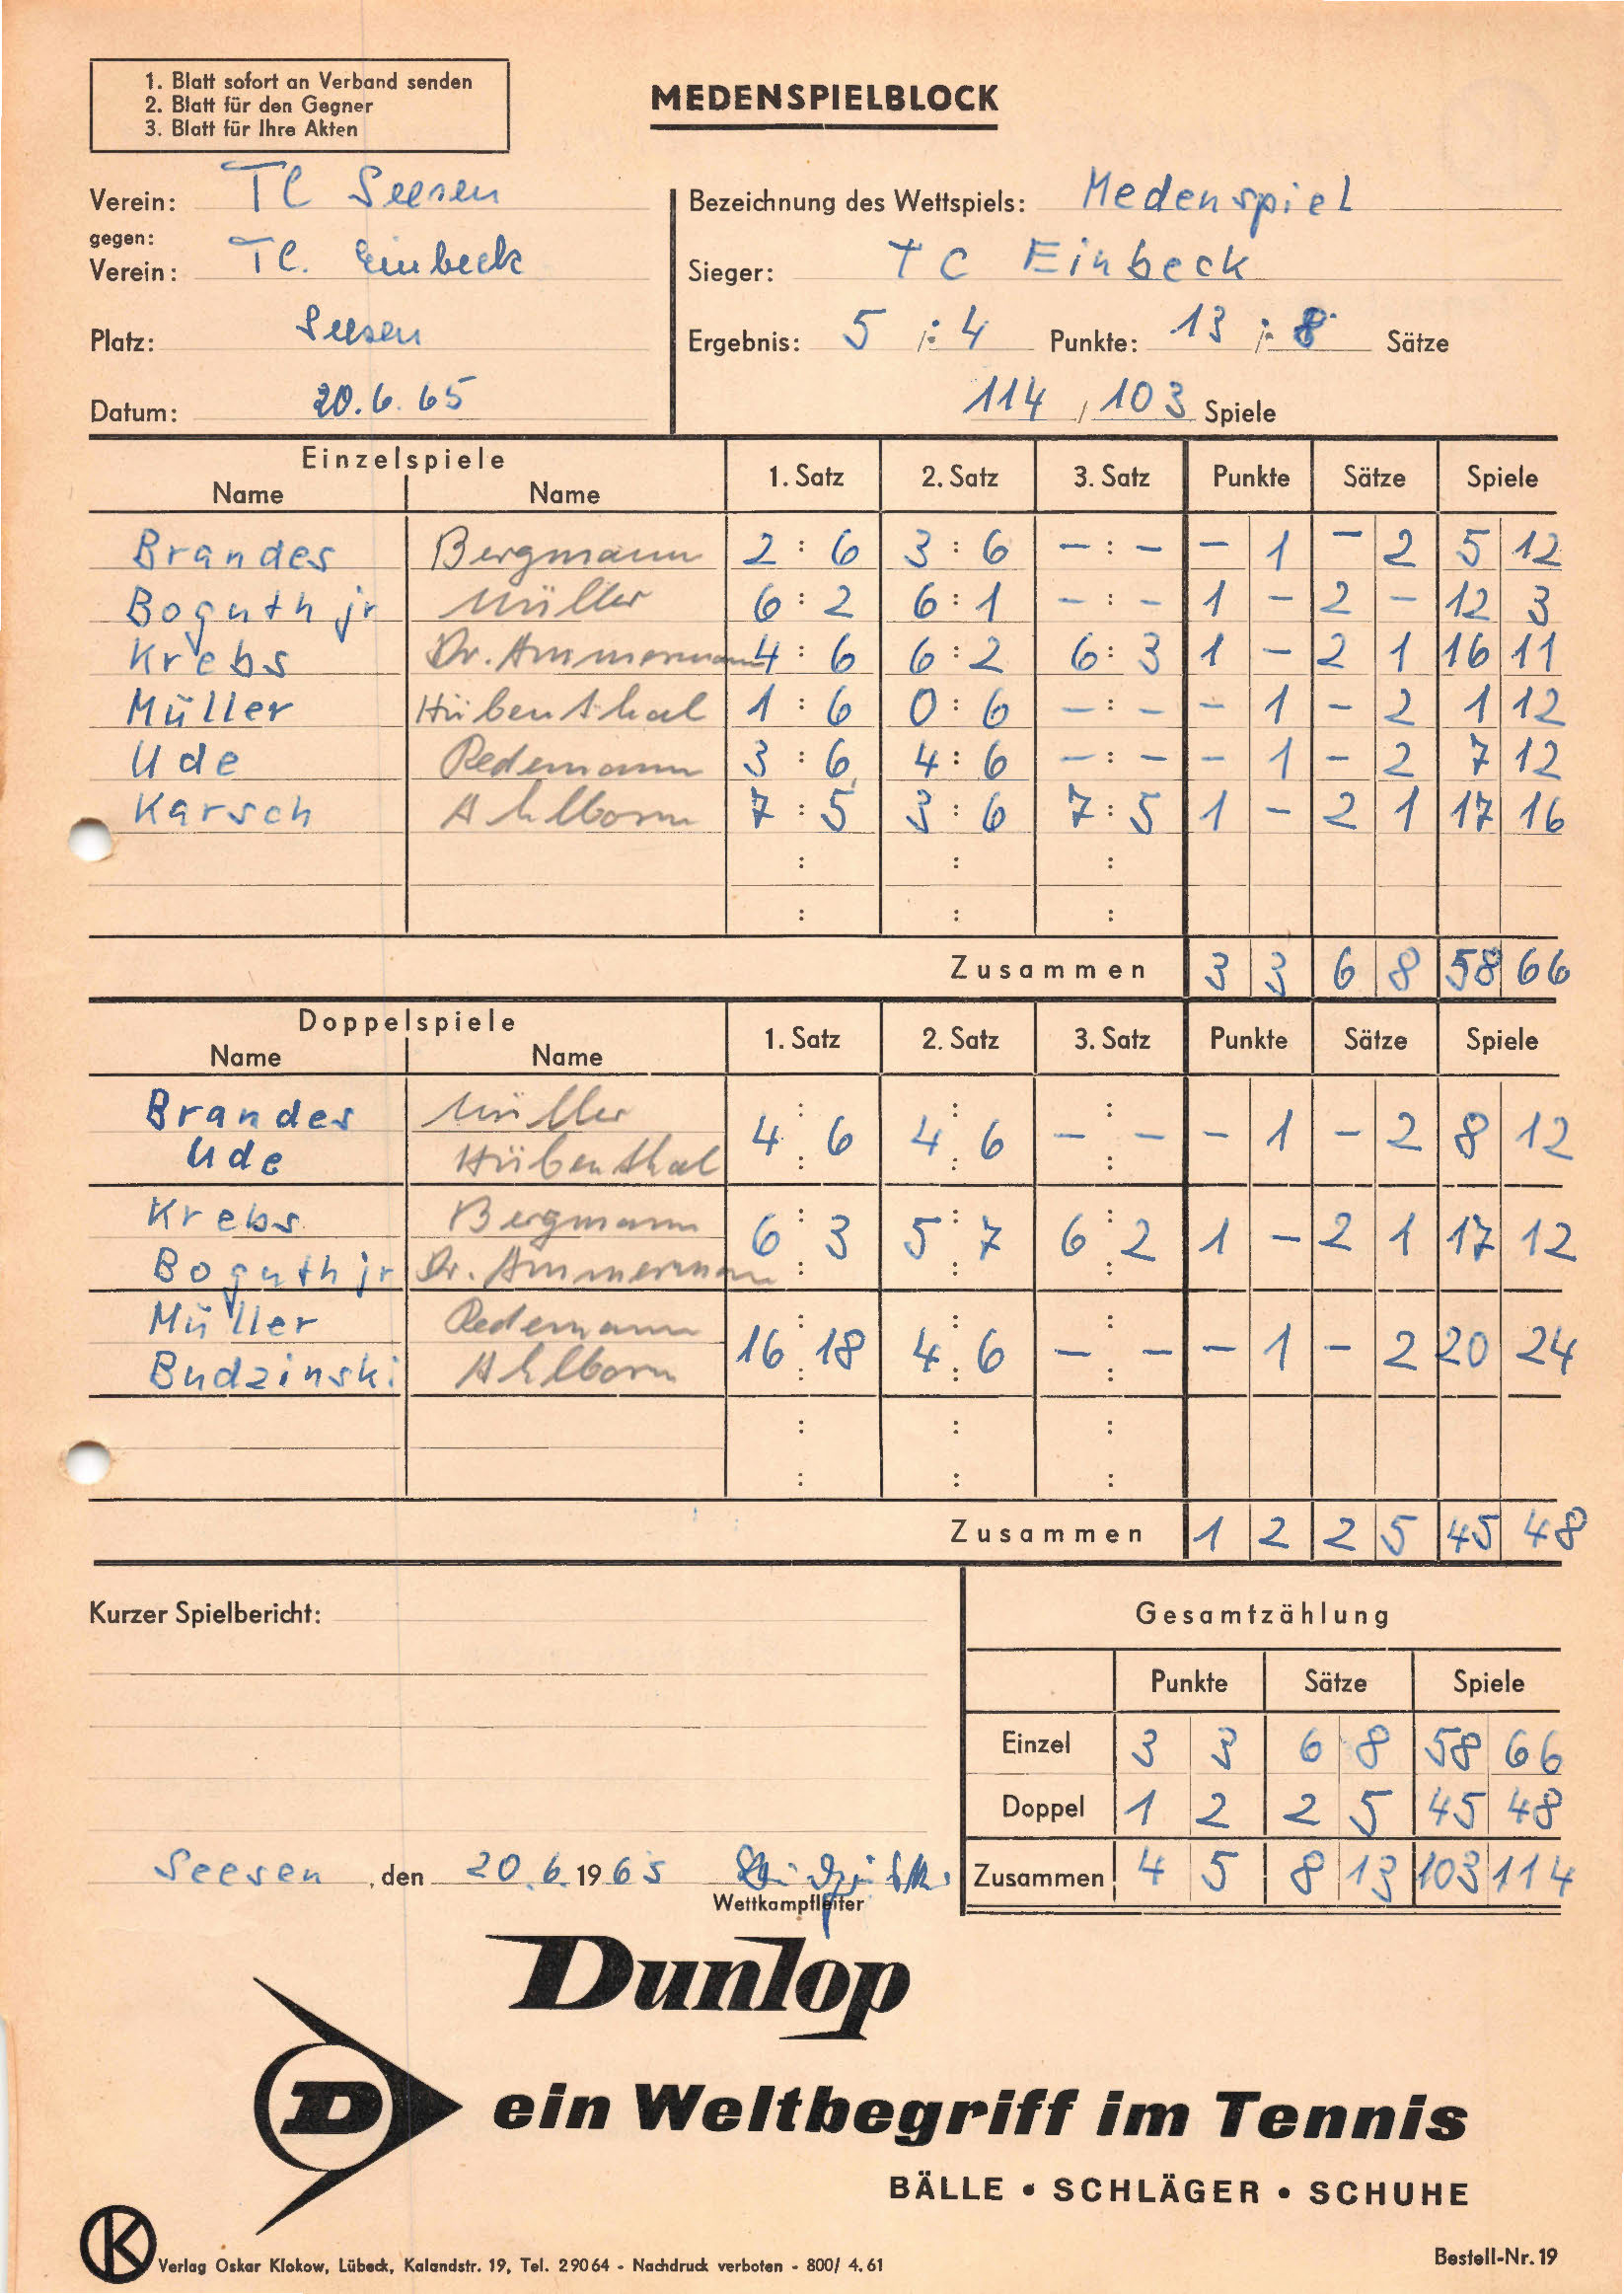 1. Blatt sofort an Verband senden
2. Blatt für den Gegner
3. Blatt für Ihre Akten
MEDENSPIELBLOCK
Verein: TC Seesen
gegen:
Verein: TC. Einbeck
Platz: Seesen
Datum: 20.6.65
Bezeichnung des Wettspiels: Medenspiel
Sieger: TC Einbeck
Ergebnis: 5 : 4 Punkte: 13 : 8 Sätze
114 / 103 Spiele
Einzelspiele
Name Name 1. Satz 2. Satz 3. Satz Punkte Sätze Spiele
Brandes Bergmann 2 : 6 3 : 6 – : – – 1 – 2 5 12
Boguth jr Müller 6 : 2 6 : 1 – : – 1 – 2 – 12 3
Krebs Dr. Ammermann 4 : 6 6 : 2 6 : 3 1 – 2 1 16 11
Müller Hübenthal 1 : 6 0 : 6 – : – – 1 – 2 1 12
Ude Redemann 3 : 6 4 : 6 – : – – 1 – 2 7 12
Karsch Ahlborn 7 : 5 3 : 6 7 : 5 1 – 2 1 17 16
: : :
: : :
Zusammen 3 3 6 8 58 66
Doppelspiele
Name Name 1. Satz 2. Satz 3. Satz Punkte Sätze Spiele
Brandes Müller
Ude Hübenthal
4 : 6 4 : 6 – : – – 1 – 2 8 12
Krebs Bergmann
Boguth jr Dr. Ammermann
6 : 3 5 : 7 6 : 2 1 – 2 1 17 12
Müller Redemann
Budzinski Ahlborn
16 : 18 4 : 6 – : – – 1 – 2 20 24
: : :
: : :
Zusammen 1 2 2 5 45 48
Kurzer Spielbericht:
Gesamtzählung
Punkte Sätze Spiele
Einzel 3 3 6 8 58 66
Doppel 1 2 2 5 45 48
Zusammen 4 5 8 13 103 114
Seesen, den 20.6.1965
Wettkampfleiter
Dunlop
D
ein Weltbegriff im Tennis
BÄLLE • SCHLÄGER • SCHUHE
K
Verlag Oskar Klokow, Lübeck, Kalandstr. 19, Tel. 29064 - Nachdruck verboten - 800/ 4.61
Bestell-Nr. 19